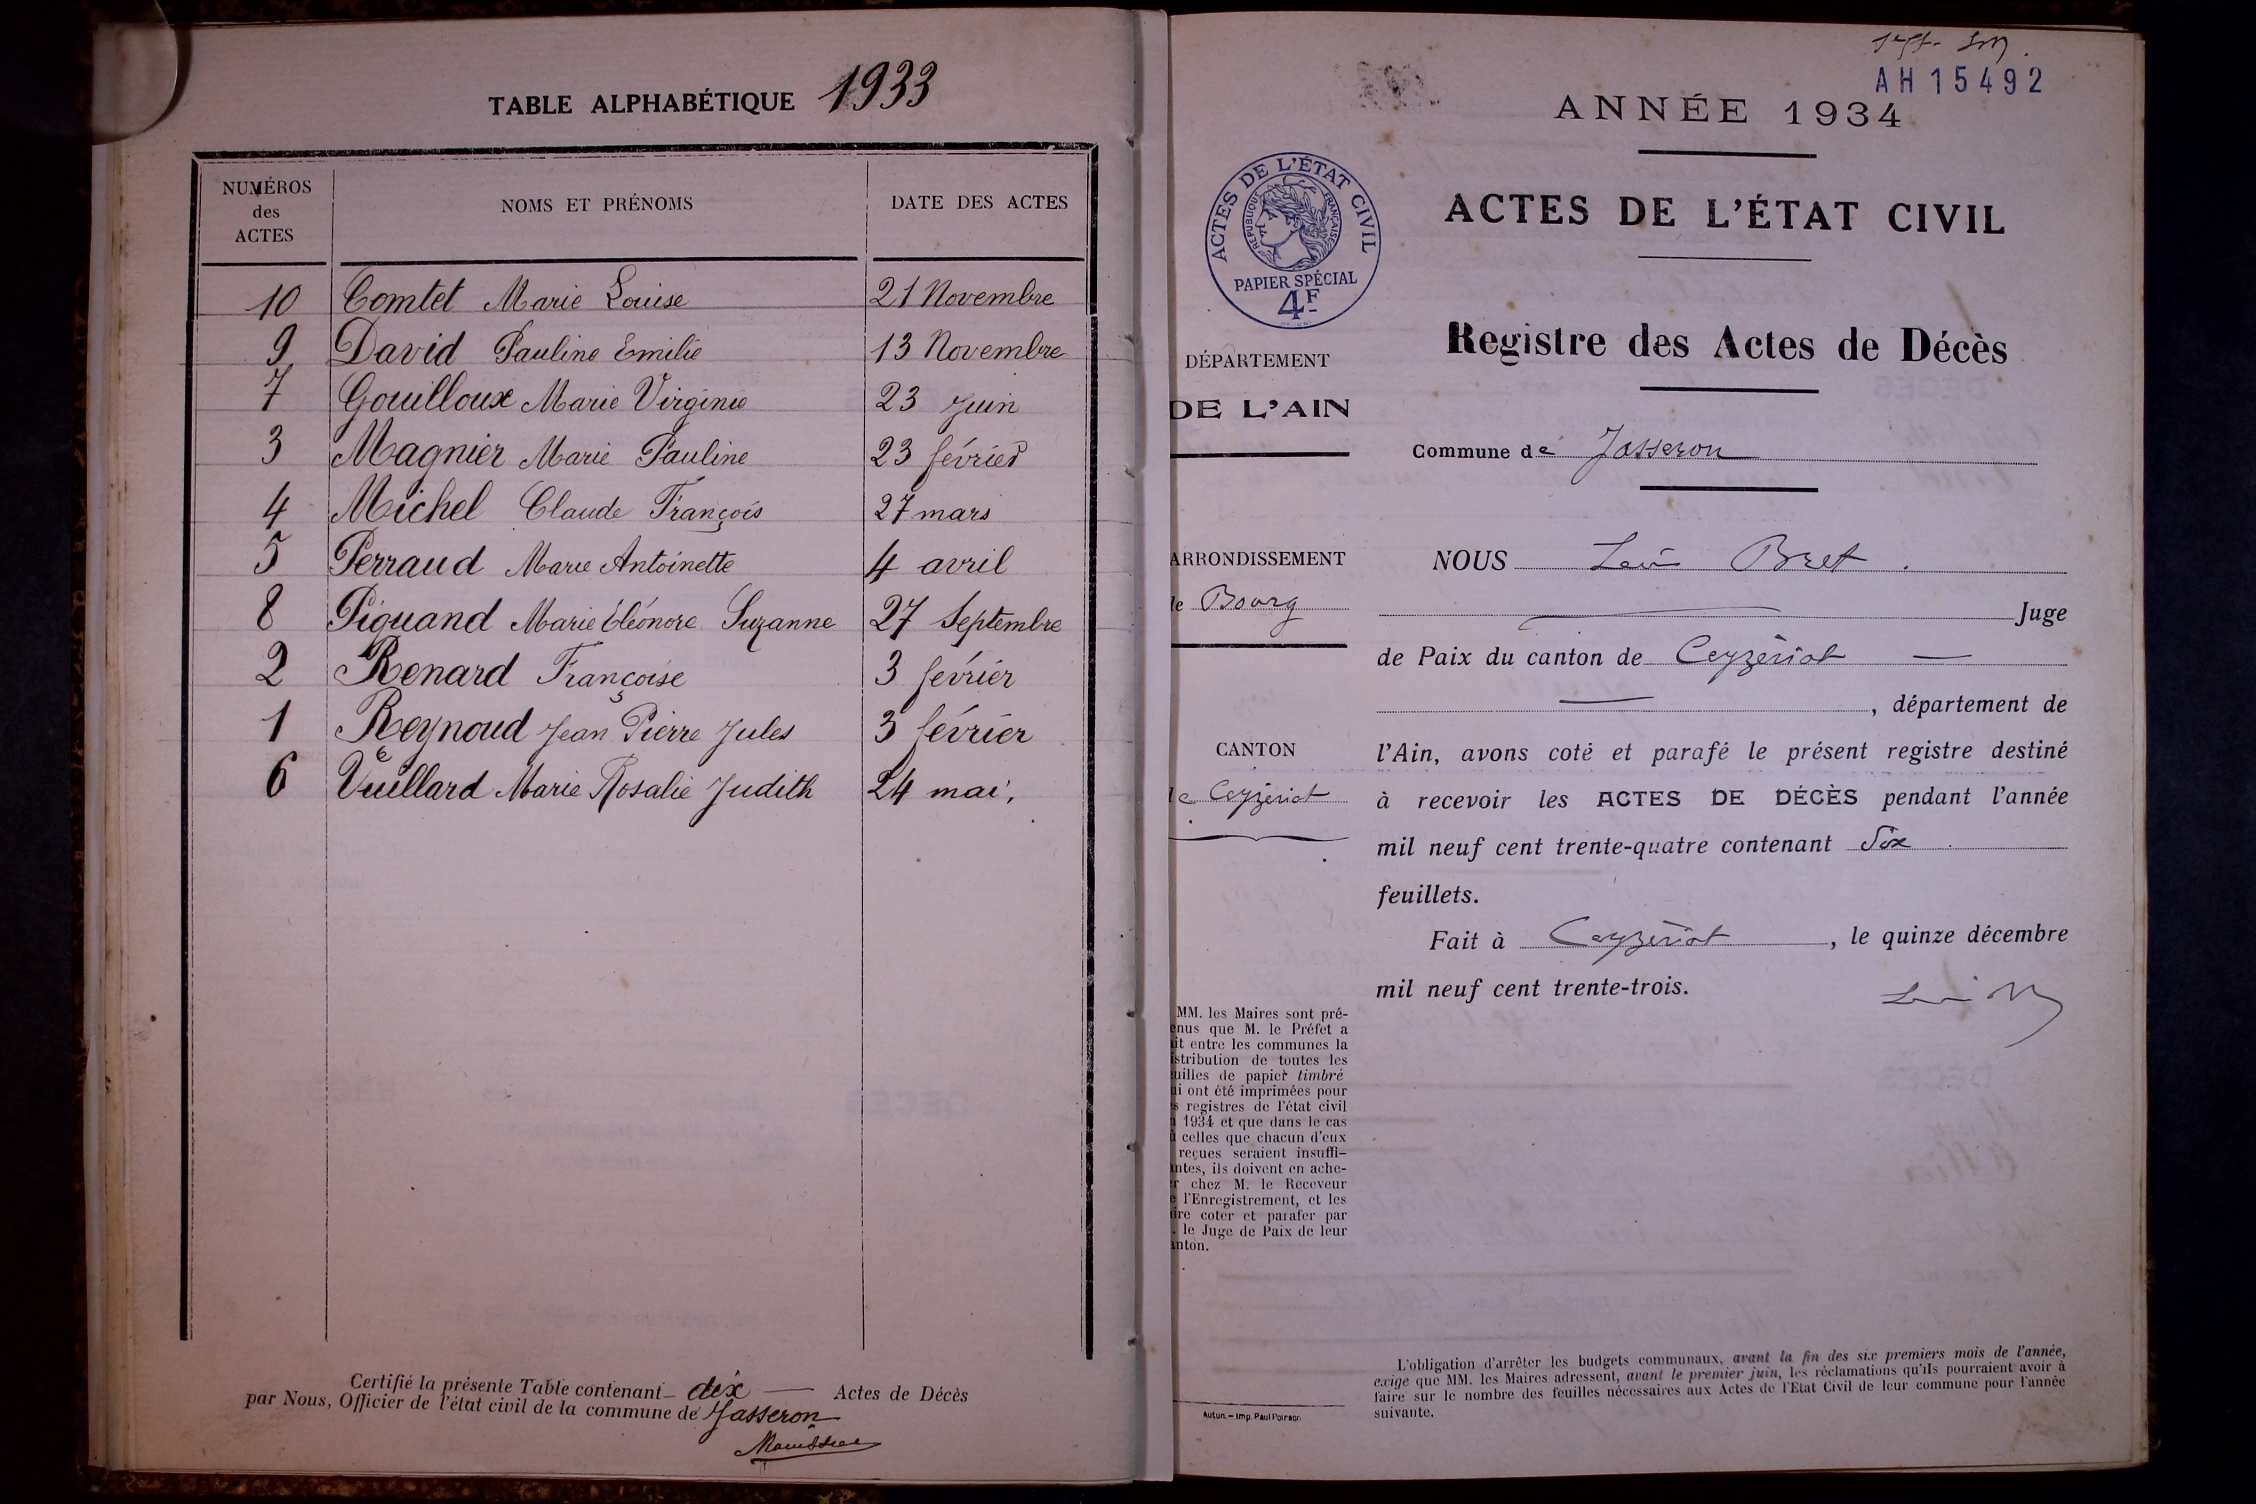 TABLE ALPHABÉTIQUE 1933
NUMÉROS
des
ACTES
NOMS ET PRÉNOMS
DATE DES ACTES
10 Comtet Marie Louise 21 Novembre
9 David Pauline Emilie 13 Novembre
7 Gouilloux Marie Virginie 23 Juin
3 Magnier Marie Pauline 23 février
4 Michel Claude François 27 mars
5 Perraud Marie Antoinette 4 avril
8 Piquand Marie Eléonore Suzanne 27 Septembre
2 Renard Françoise 3 février
1 Reynoud Jean Pierre Jules 3 février
6 Vuillard Marie Rosalie Judith 24 mai.
Certifié la présente Table contenant dix Actes de Décès
par Nous, Officier de l'état civil de la commune de Jasseron
AH 15492
ANNÉE 1934
ACTES DE L'ÉTAT CIVIL
RÉPUBLIQUE FRANÇAISE
PAPIER SPÉCIAL
4F
DÉPARTEMENT
DE L'AIN
ARRONDISSEMENT
de Bourg
CANTON
de Ceyzériat
MM. les Maires sont pré-
enus que M. le Préfet a
it entre les communes la
stribution de toutes les
uilles de papier timbré
ui ont été imprimées pour
s registres de l'état civil
n 1934 et que dans le cas
ù celles que chacun d'eux
reçues seraient insuffi-
ntes, ils doivent en ache-
r chez M. le Receveur
e l'Enregistrement, et les
ire coter et parafer par
. le Juge de Paix de leur
anton.
Autun. - Imp. Paul Poirson
ACTES DE L'ÉTAT CIVIL
Registre des Actes de Décès
Commune de Jasseron
NOUS Bret
Juge
de Paix du canton de Ceyzériat
, département de
l'Ain, avons coté et parafé le présent registre destiné
à recevoir les ACTES DE DÉCÈS pendant l'année
mil neuf cent trente-quatre contenant Six
feuillets.
Fait à Ceyzériat, le quinze décembre
mil neuf cent trente-trois.
L'obligation d'arrêter les budgets communaux, avant la fin des six premiers mois de l'année,
exige que MM. les Maires adressent, avant le premier juin, les réclamations qu'ils pourraient avoir à
faire sur le nombre des feuilles nécessaires aux Actes de l'Etat Civil de leur commune pour l'année
suivante.